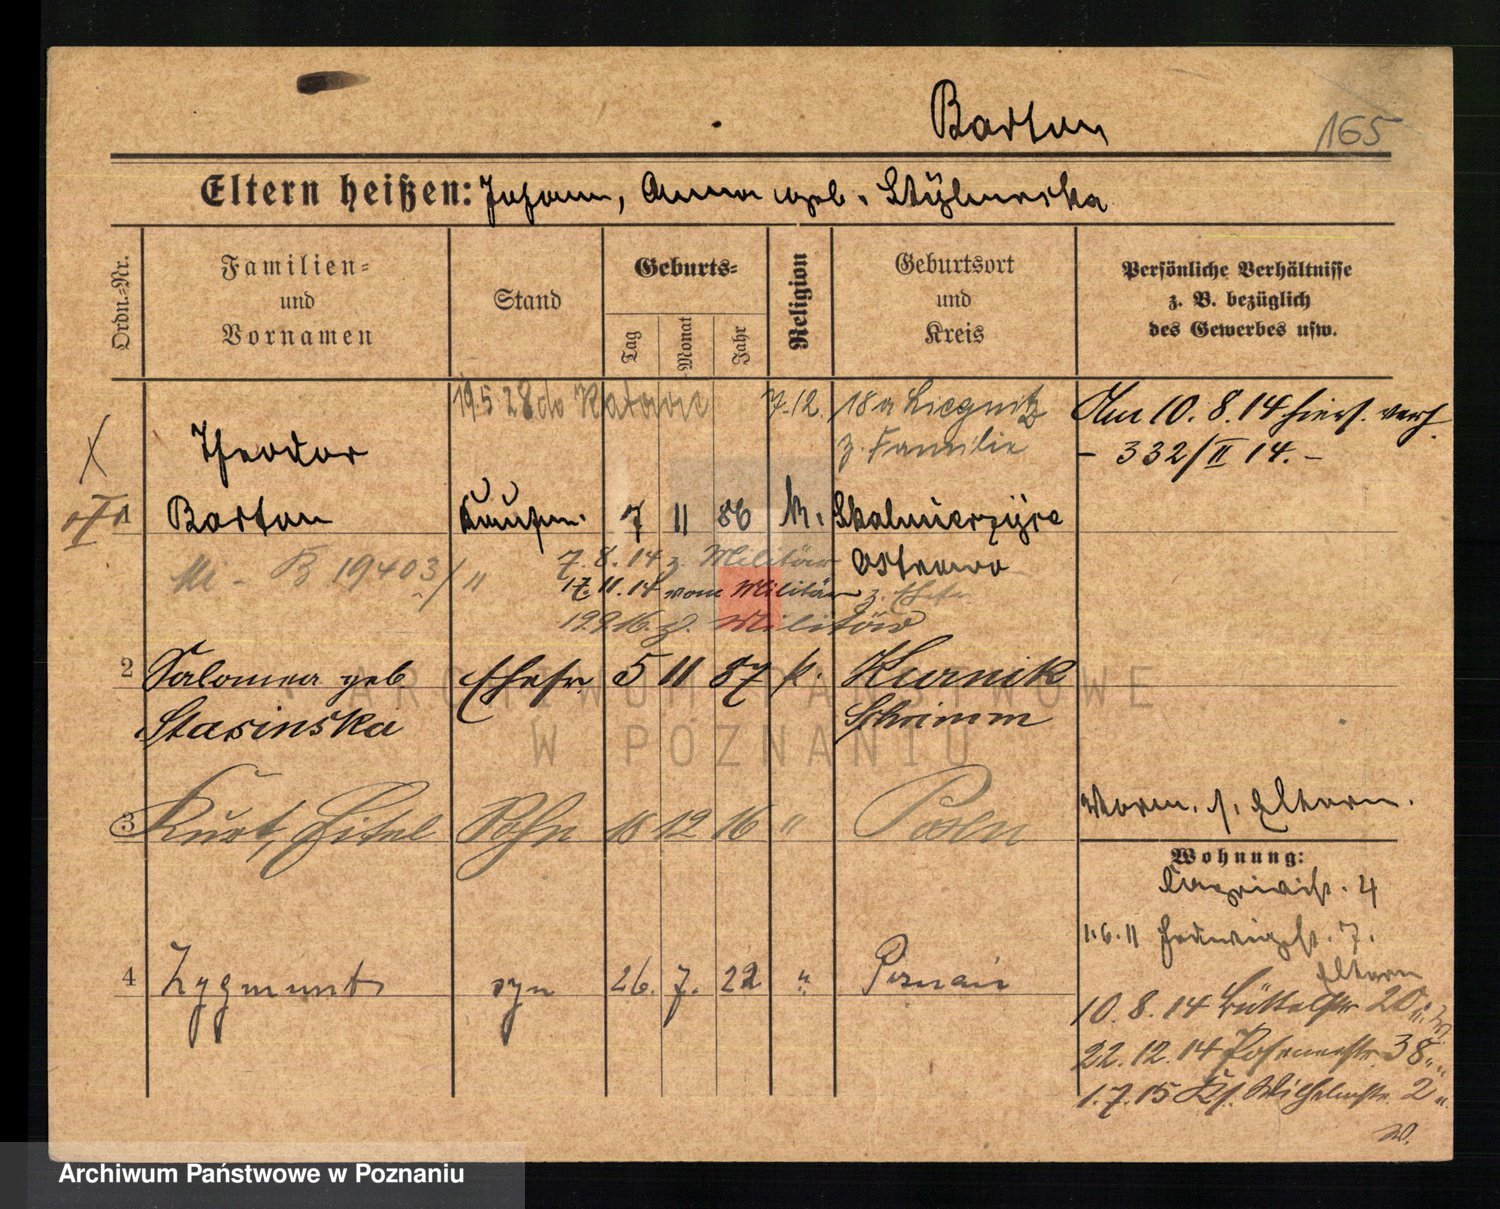 Barton
165
Eltern heißen: Johann, Anna geb. Stylnerska
Ordn.-Nr.
Familien-
und
Vornamen
Stand
Geburts-
Tag
Monat
Jahr
Religion
Geburtsort
und
Kreis
Persönliche Verhältnisse
z. B. bezüglich
des Gewerbes usw.
19.5 28 do Katowic
7.12. 18 a Liegnitz
z. Familie
Am 10. 8. 14 hiers. verh.
- 332/II 14. -
Theodor
1 Barton Kaufm. 7 11 86 k. Skalmierzyce
Ostrowo
B 19403/"
7. 8. 14 z. Militär
17. 11. 14 vom Militär z. Ehefr.
z. Militär
2 Salomea geb. Ehefr. 5 11 87 k. Kurnik
Stasinska Schrimm
3 Kurt, Eitel Sohn 18 12 16 " Posen
4 Zygmunt syn 26. 7. 22 " Poznań
Vorm. s. Eltern.
Wohnung:
4
1. 6. 11 Hedwigstr. 7.
Eltern
10. 8. 14 Büttelstr. 20
22. 12. 14 Posenerstr. 38
1. 7. 15 Ks. Wilhelmstr. 2
W.
ARCHIWUM PAŃSTWOWE
W POZNANIU
Archiwum Państwowe w Poznaniu